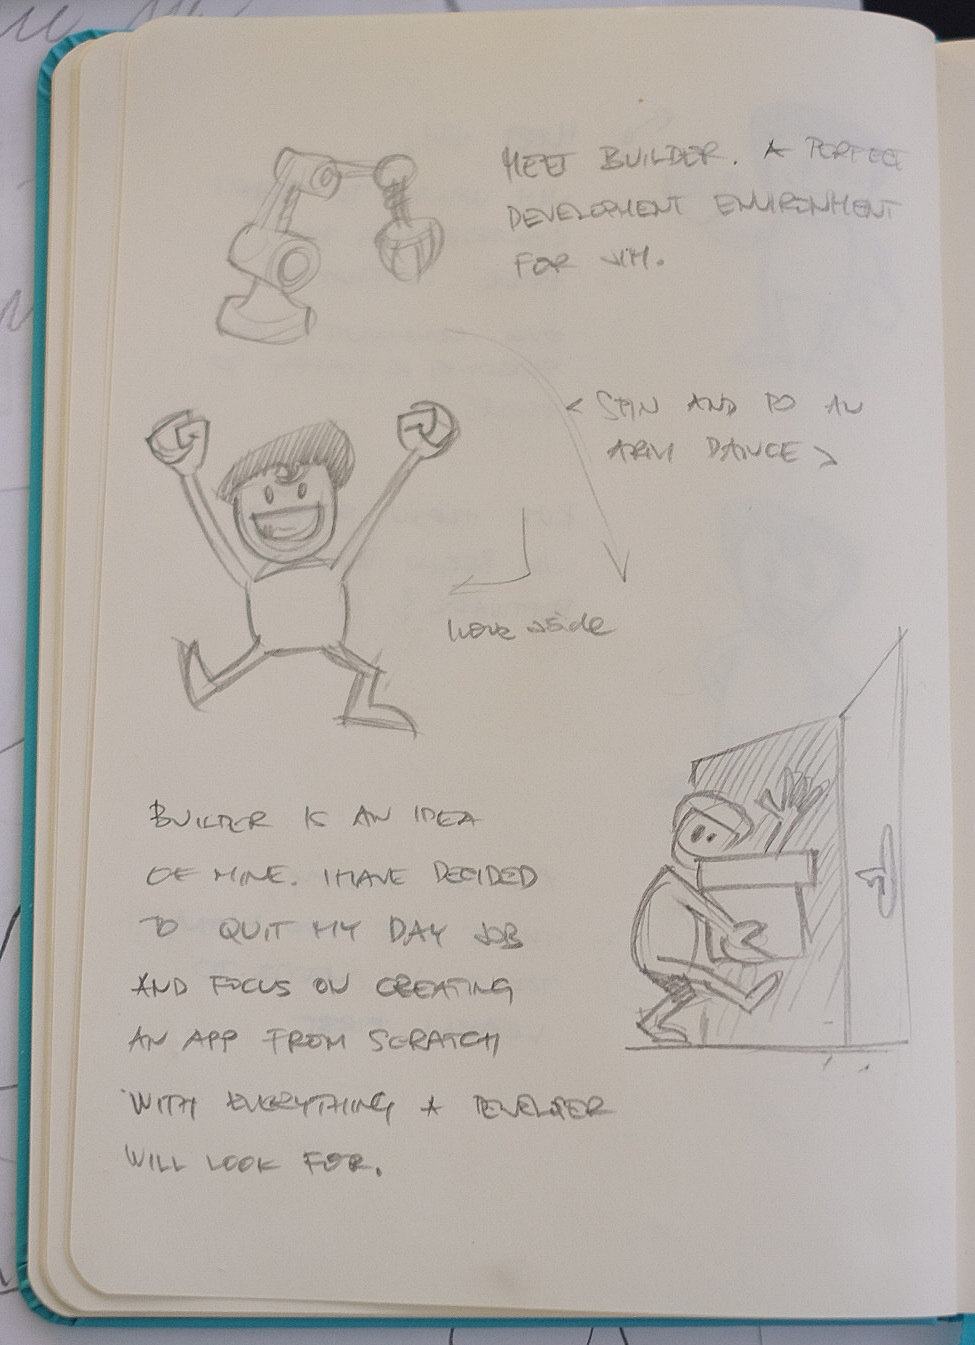 MEET BUILDER. A PERFECT
DEVELOPMENT ENVIRONMENT
FOR VIM.
< SPIN AND DO AN
ARM DANCE >
move aside
BUILDER IS AN IDEA
OF MINE. I HAVE DECIDED
TO QUIT MY DAY JOB
AND FOCUS ON CREATING
AN APP FROM SCRATCH
WITH EVERYTHING A DEVELOPER
WILL LOOK FOR.